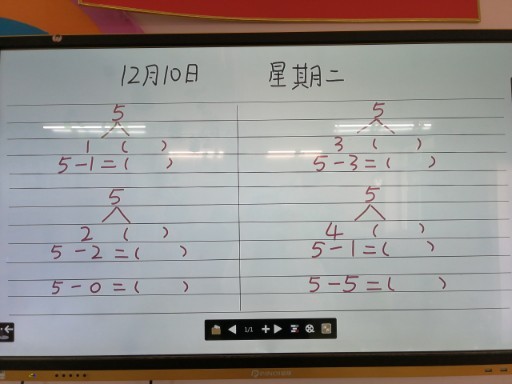 12月10日 星期二
5
1 ( )
5-1=( )
5
2 ( )
5-2=( )
5-0=( )
5
3 ( )
5-3=( )
5
4 ( )
5-1=( )
5-5=( )
1/1